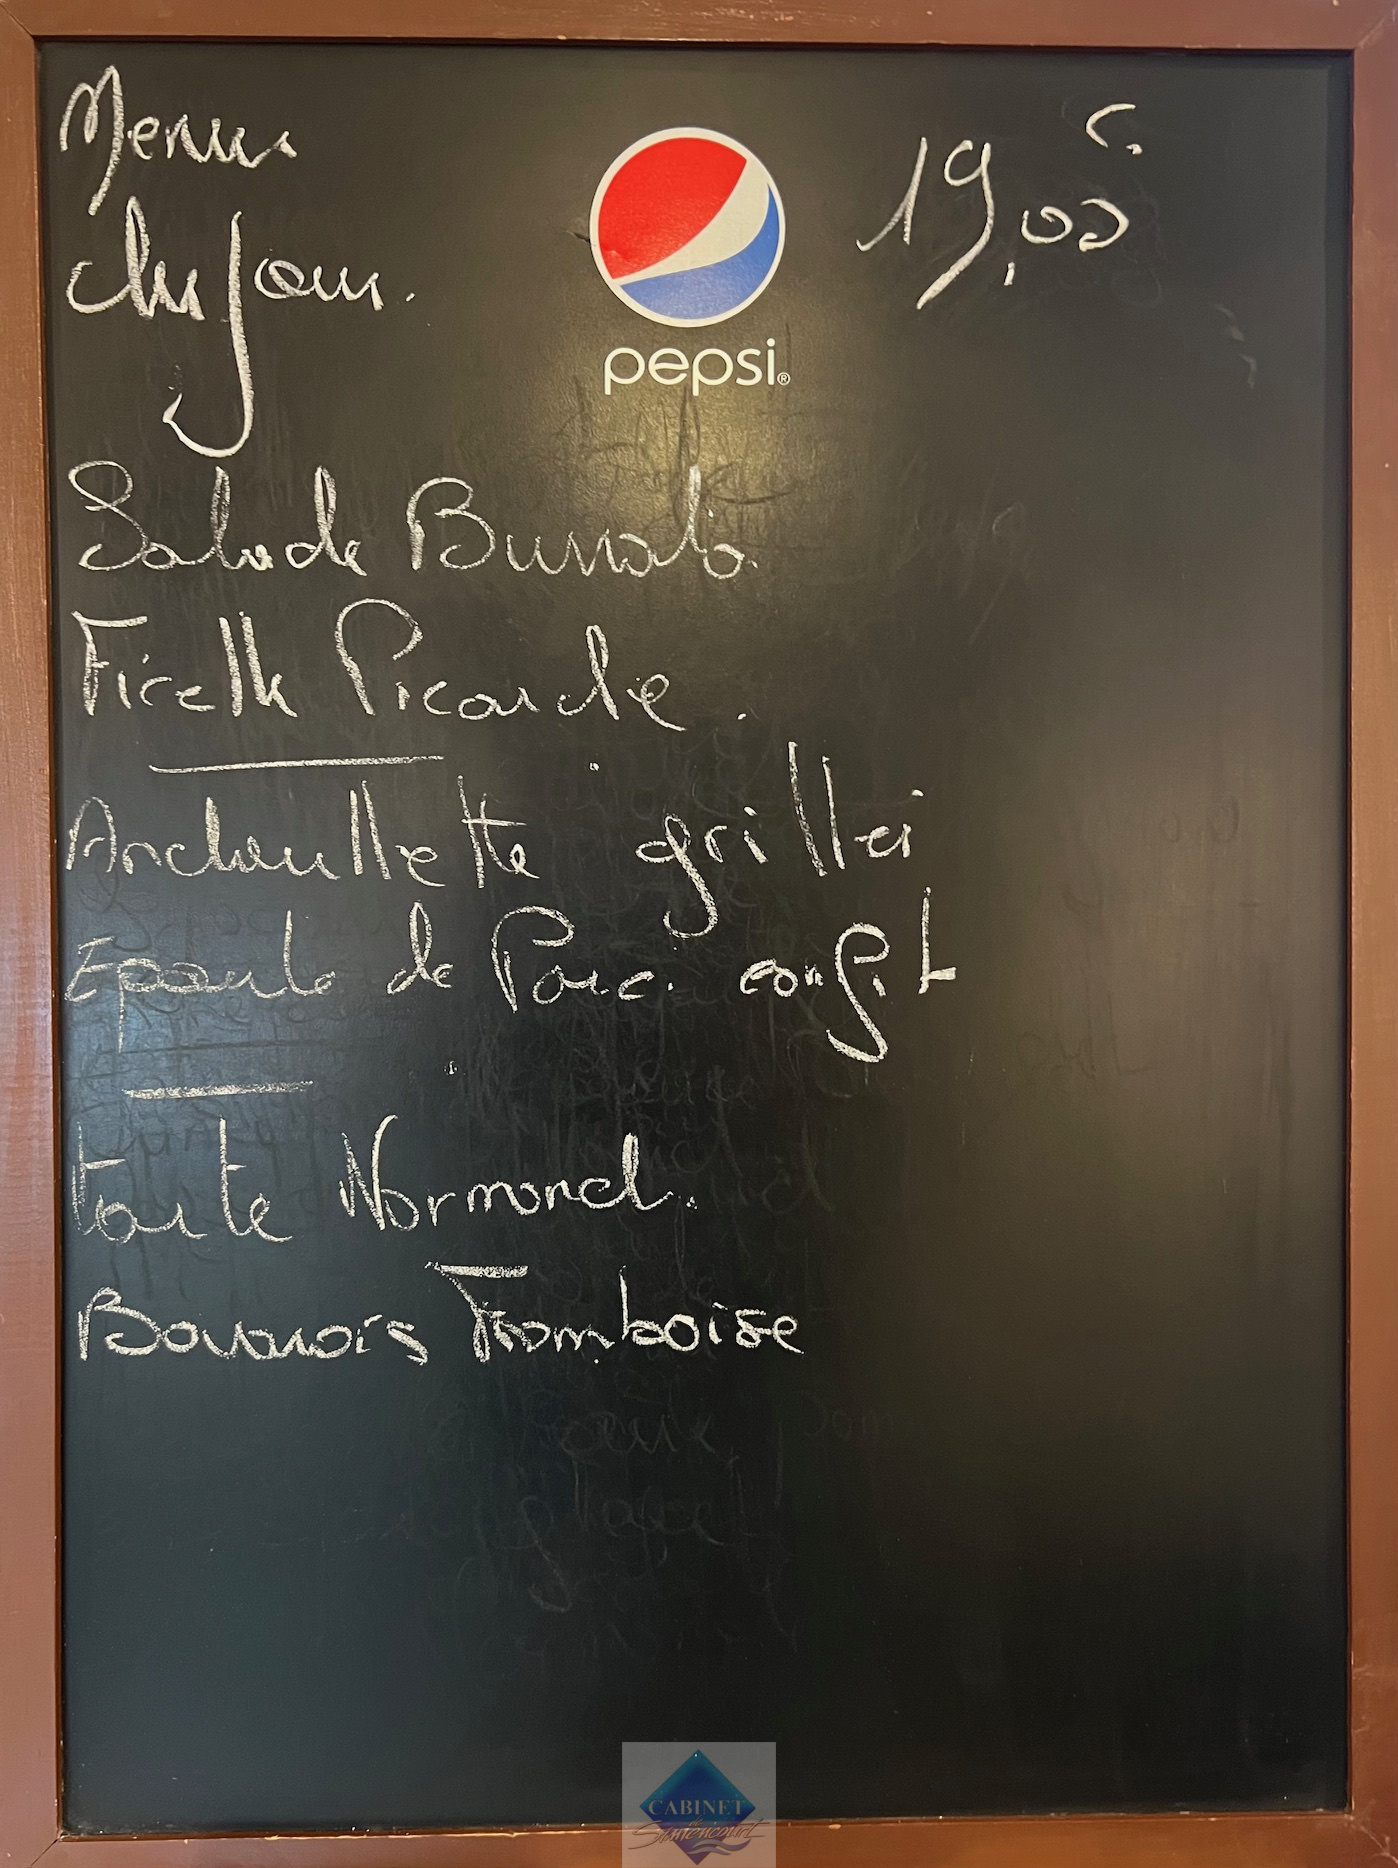 Menu
du jour.
19,00 €
pepsi®
Salade Burrata.
Ficelle Picarde.
Andouillette grillée
Epaule de Porc confit
tarte Normand.
Bavarois Framboise
CABINET
de
Simencourt